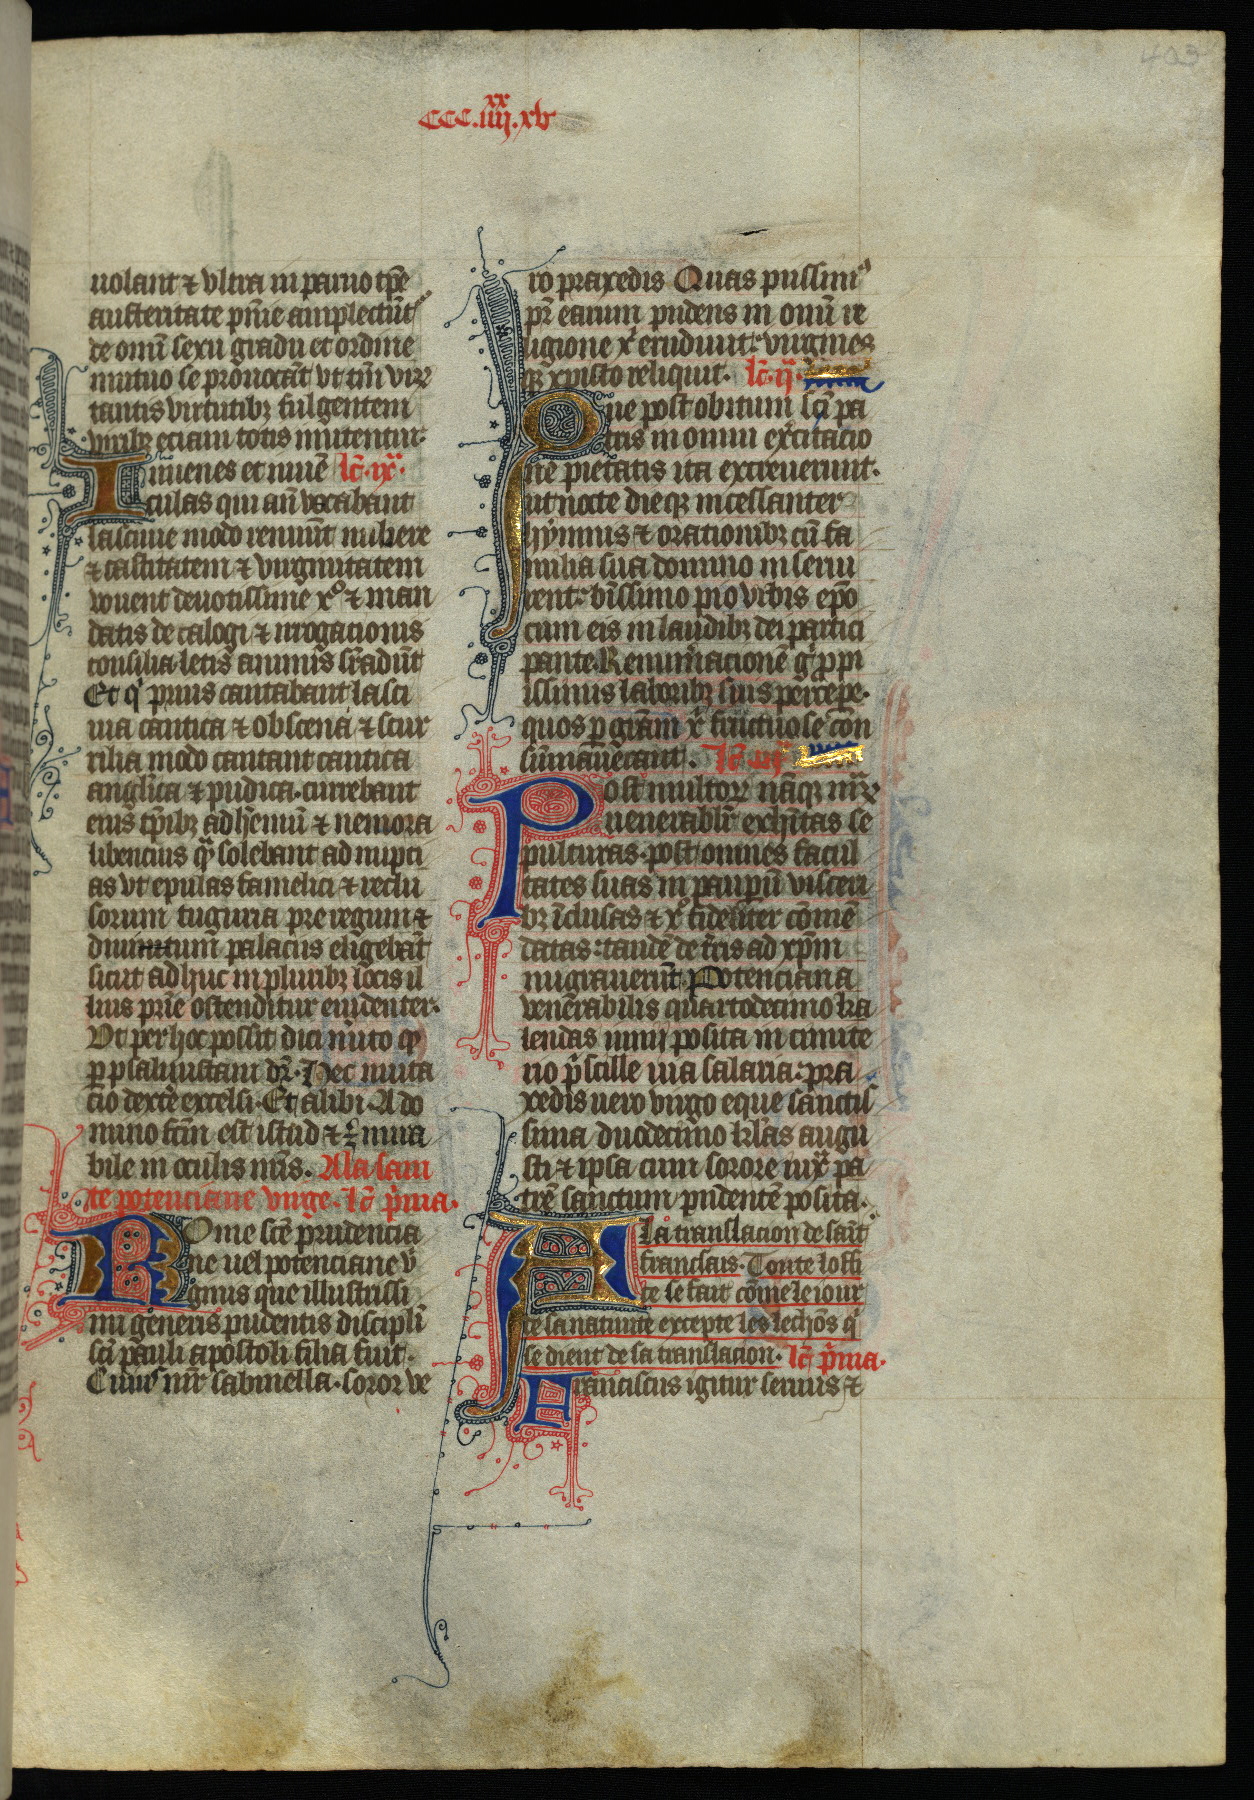 403
CCC.iiij.xx xv
uolant ⁊ vltra in paruo tp̄e
austeritate pn̄ie amplectūt᷑
de om̄i sexu gradu et ordine
mutuo se prouocāt vt tm̄ virꝝ
tantis virtutibꝫ fulgentem
viribꝫ eciam totis imitentur.
Iuuenes et iuuē lc̄.ix.
culas qui an̄ vacabant
lasciuie modo renuūt nubere
⁊ castitatem ⁊ virginitatem
vouent deuotissime xº ⁊ man
datis decalogi ⁊ irrogacionis
consilia letis animis sr̄adūt
Et qͥ prius cantabant lasci
uia cantica ⁊ obscena ⁊ scur
rilia modo cantant cantica
anglica ⁊ pudica. currebant
eius tp̄ribꝫ ad heremū ⁊ nemora
libencius qᷓ solebant ad nupci
as vt epulas famelici ⁊ reclu
sorum tuguria pre regum ⁊
diuitum palaciis eligebāt
sicut adhuc in pluribꝫ locis il
lius prīe ostenditur euidenter.
Vt per hoc possit dici m̄ito qͥ
ꝑ psalmistam dr̄. Hec muta
cio dext̄e excelsi. Et alibi. A do
mino fc̄m est istud ⁊ ē mira
bile in oculis nr̄is. A la sain
te potenciane virge. lc̄ p̄ma.
Rome sc̄e prudencia
ne uel potenciane v̄
ginis que illustrissi
mi generis pudentis discipli
sc̄i pauli apostoli filia fuit.
Cuius mr̄ sabinella. soror ve
ro praxedis Quas piissimꝰ
pr̄ earum pudens in om̄i re
ligione xͥ erudiuit: virgines
qꝫ xpisto reliquit. lc̄.ij.
Que post obitum sc̄i pa
tris in omni exͬcitacio
ne pietatis ita excreuerunt.
ut nocte dieqꝫ incessanter
hymnis ⁊ orationibꝫ cū fa
milia sua domino in serui
rent: bt̄issimo pio vrbis ep̄o
cum eis in laudibꝫ dei partici
pante. Renumͬacionē gͦ ꝓpri
issimis laboribꝫ suis percepe.
quos ꝑ gr̄am xͥ fructuose con
sūmauerant. lc̄ iij
Post multoꝝ nāqꝫ mr̄ꝝ
uenerabilit᷑ exhitas se
pulturas. post omnes facul
tates suas in pauꝑū viscerⁱ
bꝫ ĩclusas ⁊ xº fideliter cōmē
datas: tandē de tr̄is ad xp̄m
migrauerūt. Potenciana
venerabilis quartodecimo ka
lendas iunij posita in cimite
rio pͥscille uia salaria: pra
xedis uero virgo eque sanctiſ
sima duodecimo kl̄as augu
sti ⁊ ipsa cum sorore iuxͣ pa
trē sanctum pudentē posita.
A la translacion de saīt
francois. Toute loffi
ce se fait cōme le iour
de sa natiuite excepte les lechōs qͥ
se dient de sa translacion. lc̄ p̄ma.
Franciscus igitur seruus ⁊